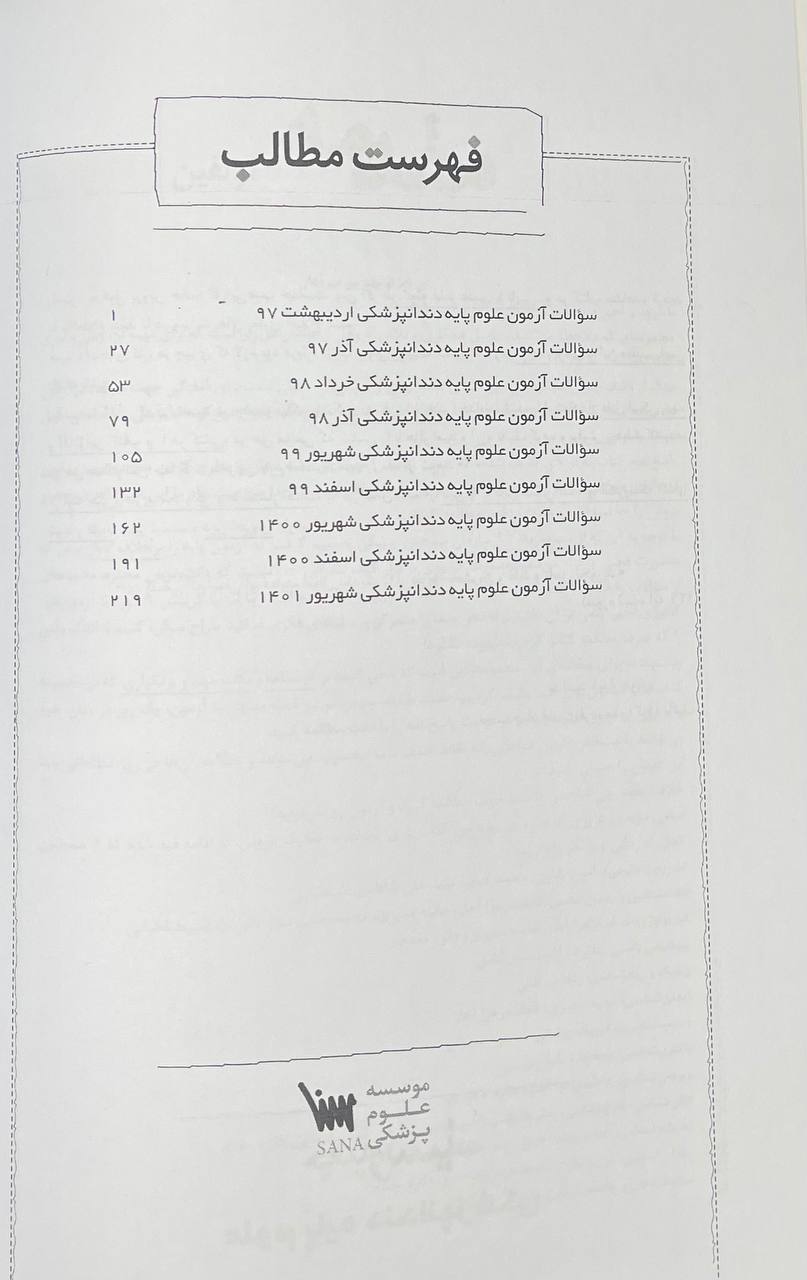 فهرست مطالب
سؤالات آزمون علوم پایه دندانپزشکی اردیبهشت ۹۷ ۱
سؤالات آزمون علوم پایه دندانپزشکی آذر ۹۷ ۲۷
سؤالات آزمون علوم پایه دندانپزشکی خرداد ۹۸ ۵۳
سؤالات آزمون علوم پایه دندانپزشکی آذر ۹۸ ۷۹
سؤالات آزمون علوم پایه دندانپزشکی شهریور ۹۹ ۱۰۵
سؤالات آزمون علوم پایه دندانپزشکی اسفند ۹۹ ۱۳۲
سؤالات آزمون علوم پایه دندانپزشکی شهریور ۱۴۰۰ ۱۶۲
سؤالات آزمون علوم پایه دندانپزشکی اسفند ۱۴۰۰ ۱۹۱
سؤالات آزمون علوم پایه دندانپزشکی شهریور ۱۴۰۱ ۲۱۹
موسسه
علوم
پزشکی
سنا
SANA